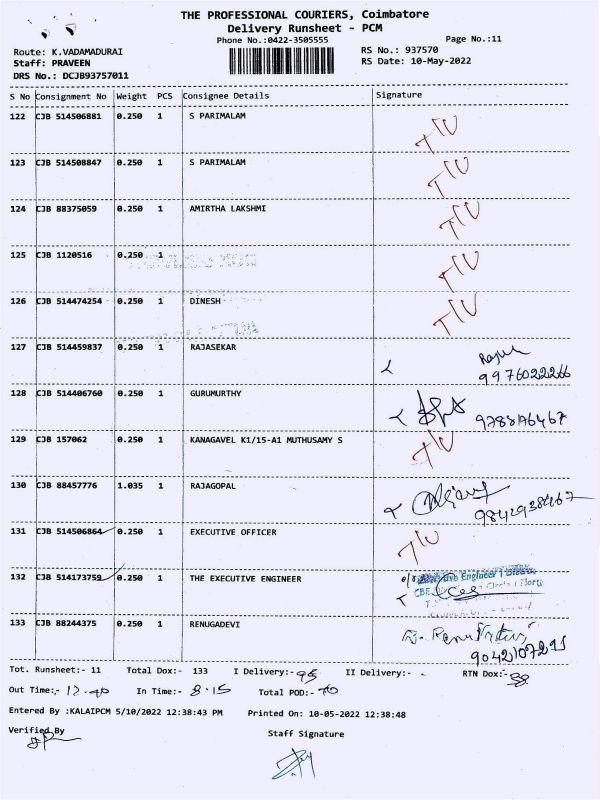 THE PROFESSIONAL COURIERS, Coimbatore
Delivery Runsheet - PCM
Phone No.:0422-3505555
Page No.:11
Route: K.VADAMADURAI
RS No.: 937570
Staff: PRAVEEN
RS Date: 10-May-2022
DRS No.: DCJB93757011
S No Consignment No Weight PCS Consignee Details Signature
122 CJB 514506881 0.250 1 S PARIMALAM
123 CJB 514508847 0.250 1 S PARIMALAM
124 CJB 88375059 0.250 1 AMIRTHA LAKSHMI
125 CJB 1120516 0.250 1
126 CJB 514474254 0.250 1 DINESH
127 CJB 514459837 0.250 1 RAJASEKAR
9976022266
128 CJB 514406760 0.250 1 GURUMURTHY
129 CJB 157062 0.250 1 KANAGAVEL K1/15-A1 MUTHUSAMY S
130 CJB 88457776 1.035 1 RAJAGOPAL
131 CJB 514506864 0.250 1 EXECUTIVE OFFICER
132 CJB 514173759 0.250 1 THE EXECUTIVE ENGINEER
Engineer
133 CJB 88244375 0.250 1 RENUGADEVI
Tot. Runsheet:- 11 Total Dox:- 133 I Delivery:- II Delivery:- RTN Dox:-
Out Time:- In Time:- 8.15 Total POD:-
Entered By :KALAIPCM 5/10/2022 12:38:43 PM Printed On: 10-05-2022 12:38:48
Verified By
Staff Signature